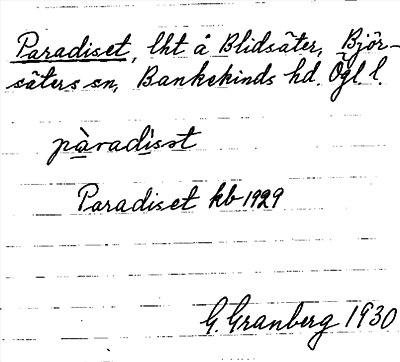 Paradiset, lht å Blidsäter, Björ-
säters sn, Bankekinds hd. Ögl. l.
pàradisst
Paradiset kb 1929
G. Granberg 1930